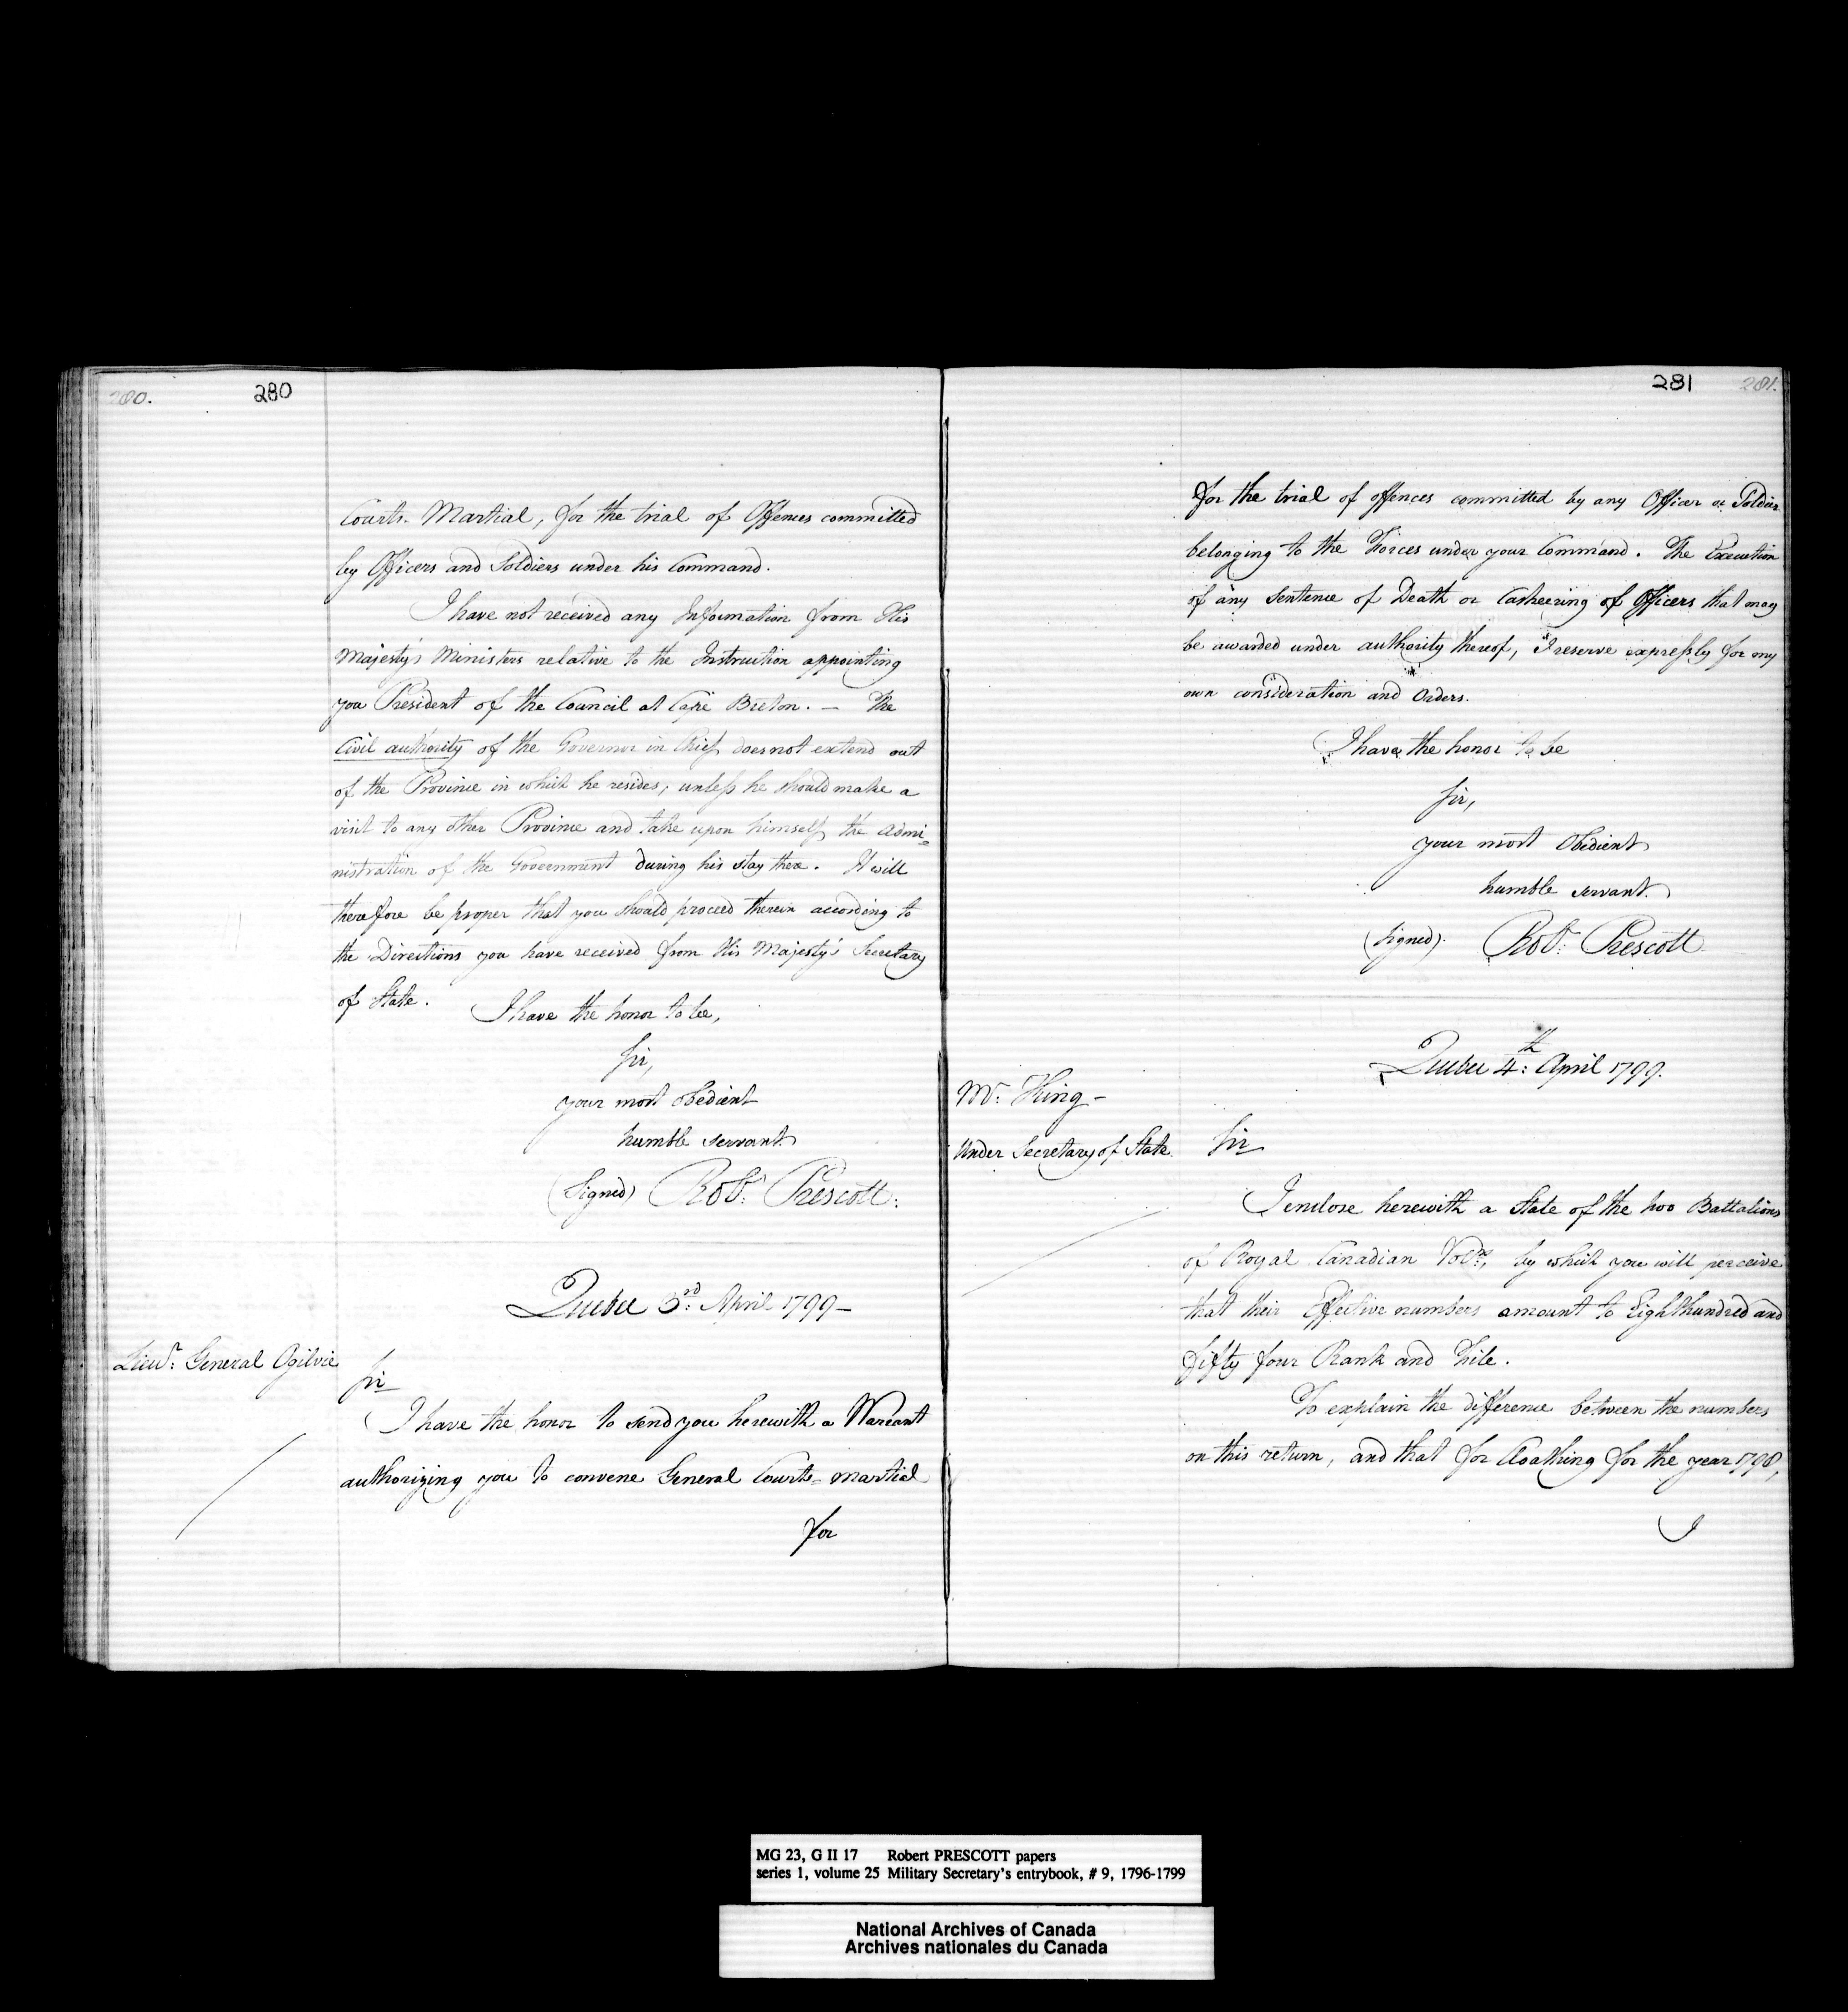 280.
280
Courts-Martial, for the trial of Offences committed
by Officers and Soldiers under his Command.
I have not received any Information from His
Majesty's Ministers relative to the Instruction appointing
you President of the Council at Cape Breton. — The
Civil authority of the Governor in Chief does not extend out
of the Province in which he resides, unless he should make a
visit to any other Province and take upon himself the Admi=
nistration of the Government during his stay there. It will
therefore be proper that you should proceed therein according to
the Directions you have received from His Majesty's Secretary
of State.
I have the honor to be,
Sir,
your most obedient
humble servant
(Signed) Robt: Prescott.
Quebec 3rd: April 1799—
Lieut: General Ogilvie
Sir
I have the honor to send you herewith a Warrant
authorizing you to convene General Courts=martial
for
281
281.
for the trial of offences committed by any Officer or Soldier
belonging to the Forces under your Command. The Execution
of any Sentence of Death or Casheering of Officers that may
be awarded under authority thereof, I reserve expressly for my
own consideration and Orders.
I have the honor to be
Sir,
your most Obedient
humble servant.
(Signed). Robt: Prescott
Quebec 4th: April 1799.
Mr: King—
Under Secretary of State.
Sir
I enclose herewith a State of the two Battalions
of Royal Canadian Volrs:, by which you will perceive
that their Effective numbers amount to Eight hundred and
fifty four Rank and File.
To explain the difference between the numbers
on this return, and that for Cloathing for the year 1798,
I
MG 23, G II 17 Robert PRESCOTT papers
series 1, volume 25 Military Secretary's entrybook, # 9, 1796-1799
National Archives of Canada
Archives nationales du Canada